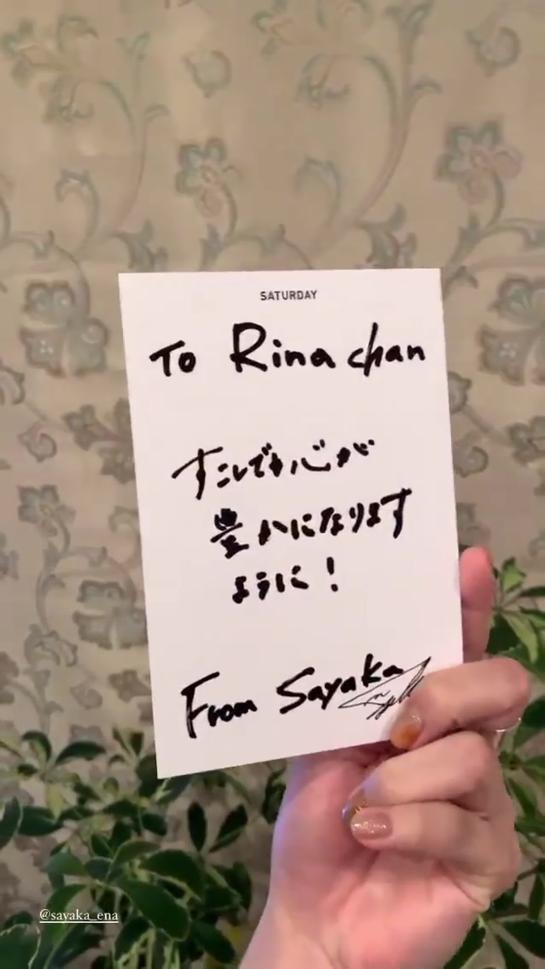 SATURDAY
To Rina chan
すこしでも心が
豊かになります
ように!
From Sayaka
@sayaka_ena